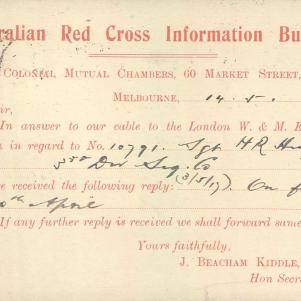 ralian Red Cross Information Bu
Colonial Mutual Chambers, 60 Market Street,
Melbourne, 14.5.
ir,
In answer to our cable to the London W. & M. E
n in regard to No. 10791. Sgt H R Hu
3rd Div Sig. Co
e received the following reply: (3/5/17). On f
th April
If any further reply is received we shall forward same
Yours faithfully,
J. BEACHAM KIDDLE,
Hon Secre